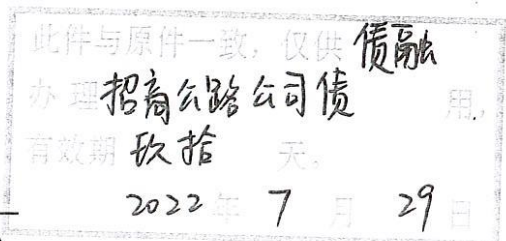 此件与原件一致，仅供 债融
办理 招商公路公司债 用，
有效期 玖拾 天。
2022年 7月 29日